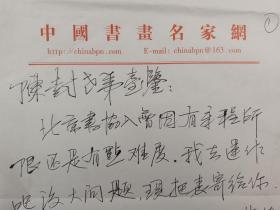 中國書畫名家網
http://chinabpn.com E-mail: chinabpn@163.com
陳封氏弟臺鑒:
北京書协入會因有章程所
限还是有點难度.我去运作
没大问题.現把表寄给你.